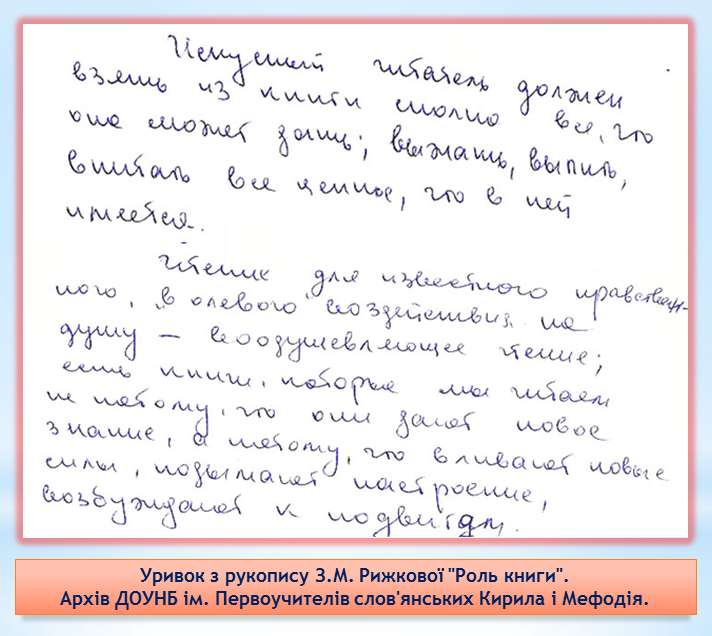 Искусный читатель должен
взять из книги столько все, что
она может дать; выжать, выпить,
впитать все ценное, что в ней
имеется.
Чтение для известного нравствен-
ного, "волевого" воздействия на
душу — воодушевляющее чтение;
есть книги, которые мы читаем
не потому, что они дают новое
знание, а потому, что вливают новые
силы, поднимают настроение,
возбуждают к подвигам.
Уривок з рукопису З.М. Рижкової "Роль книги".
Архів ДОУНБ ім. Первоучителів слов'янських Кирила і Мефодія.